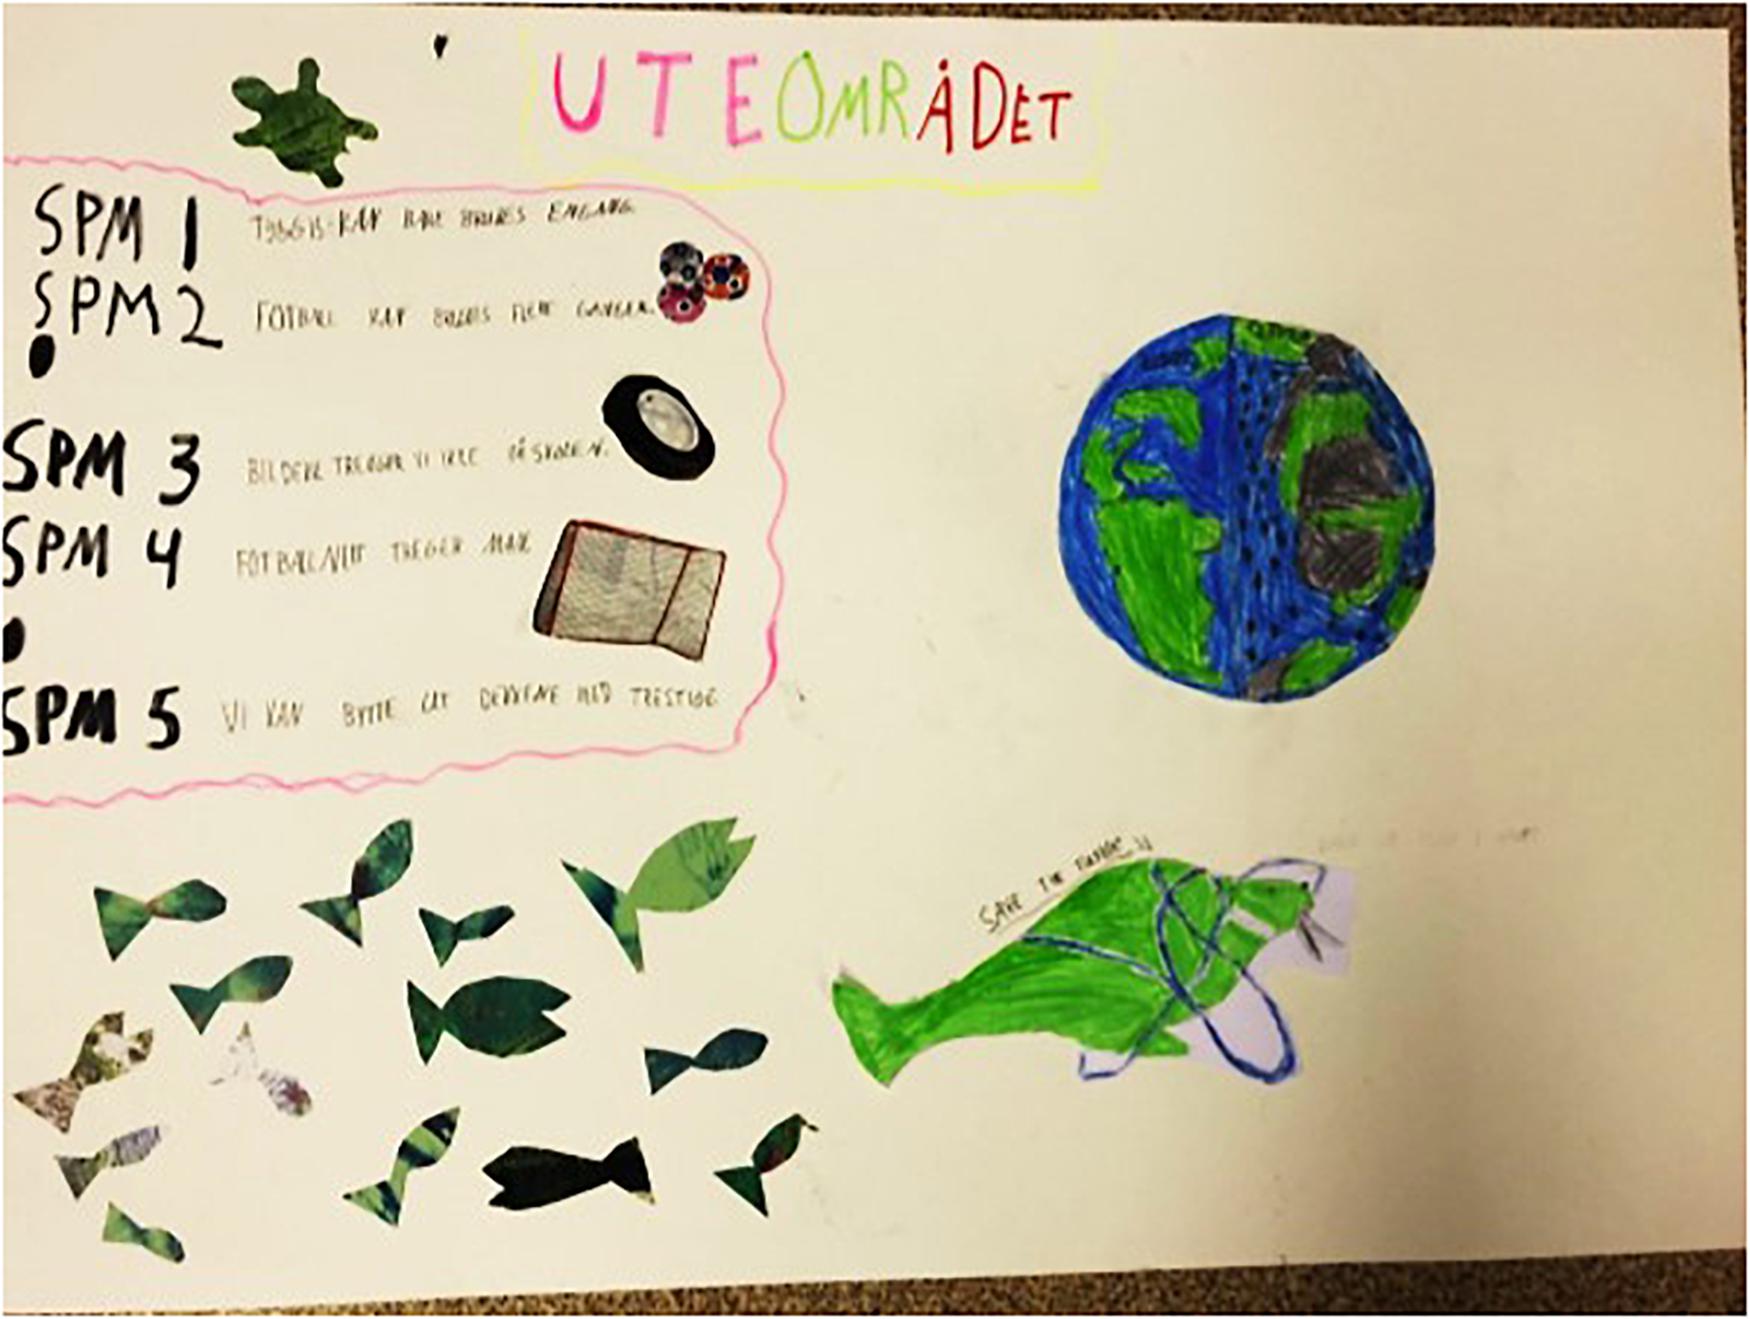 UTEOMRÅDET
SPM 1 TYGGIS KAN BARE BRUKES ENGANG
SPM 2 FOTBALL KAN BRUKES FLERE GANGER.
SPM 3 BILDEKK TRENGER VI IKKE PÅ SKOLEN.
SPM 4 FOTBALLNETT TRENGER MAN
SPM 5 VI KAN BYTTE UT DEKKENE MED TRESTIGE
SAVE THE